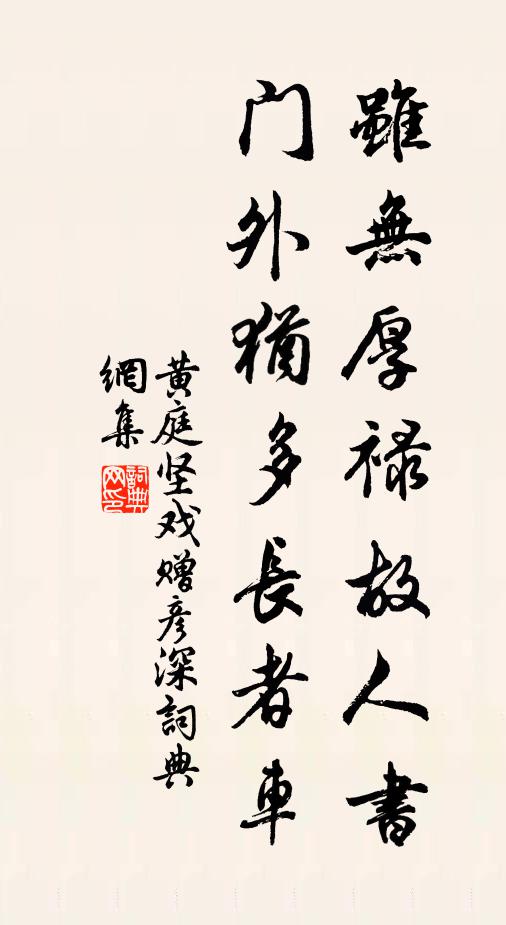 雖無厚禄故人書
門外猶多長者車
黄庭坚戏赠彦深詞典
網集
詞典網印